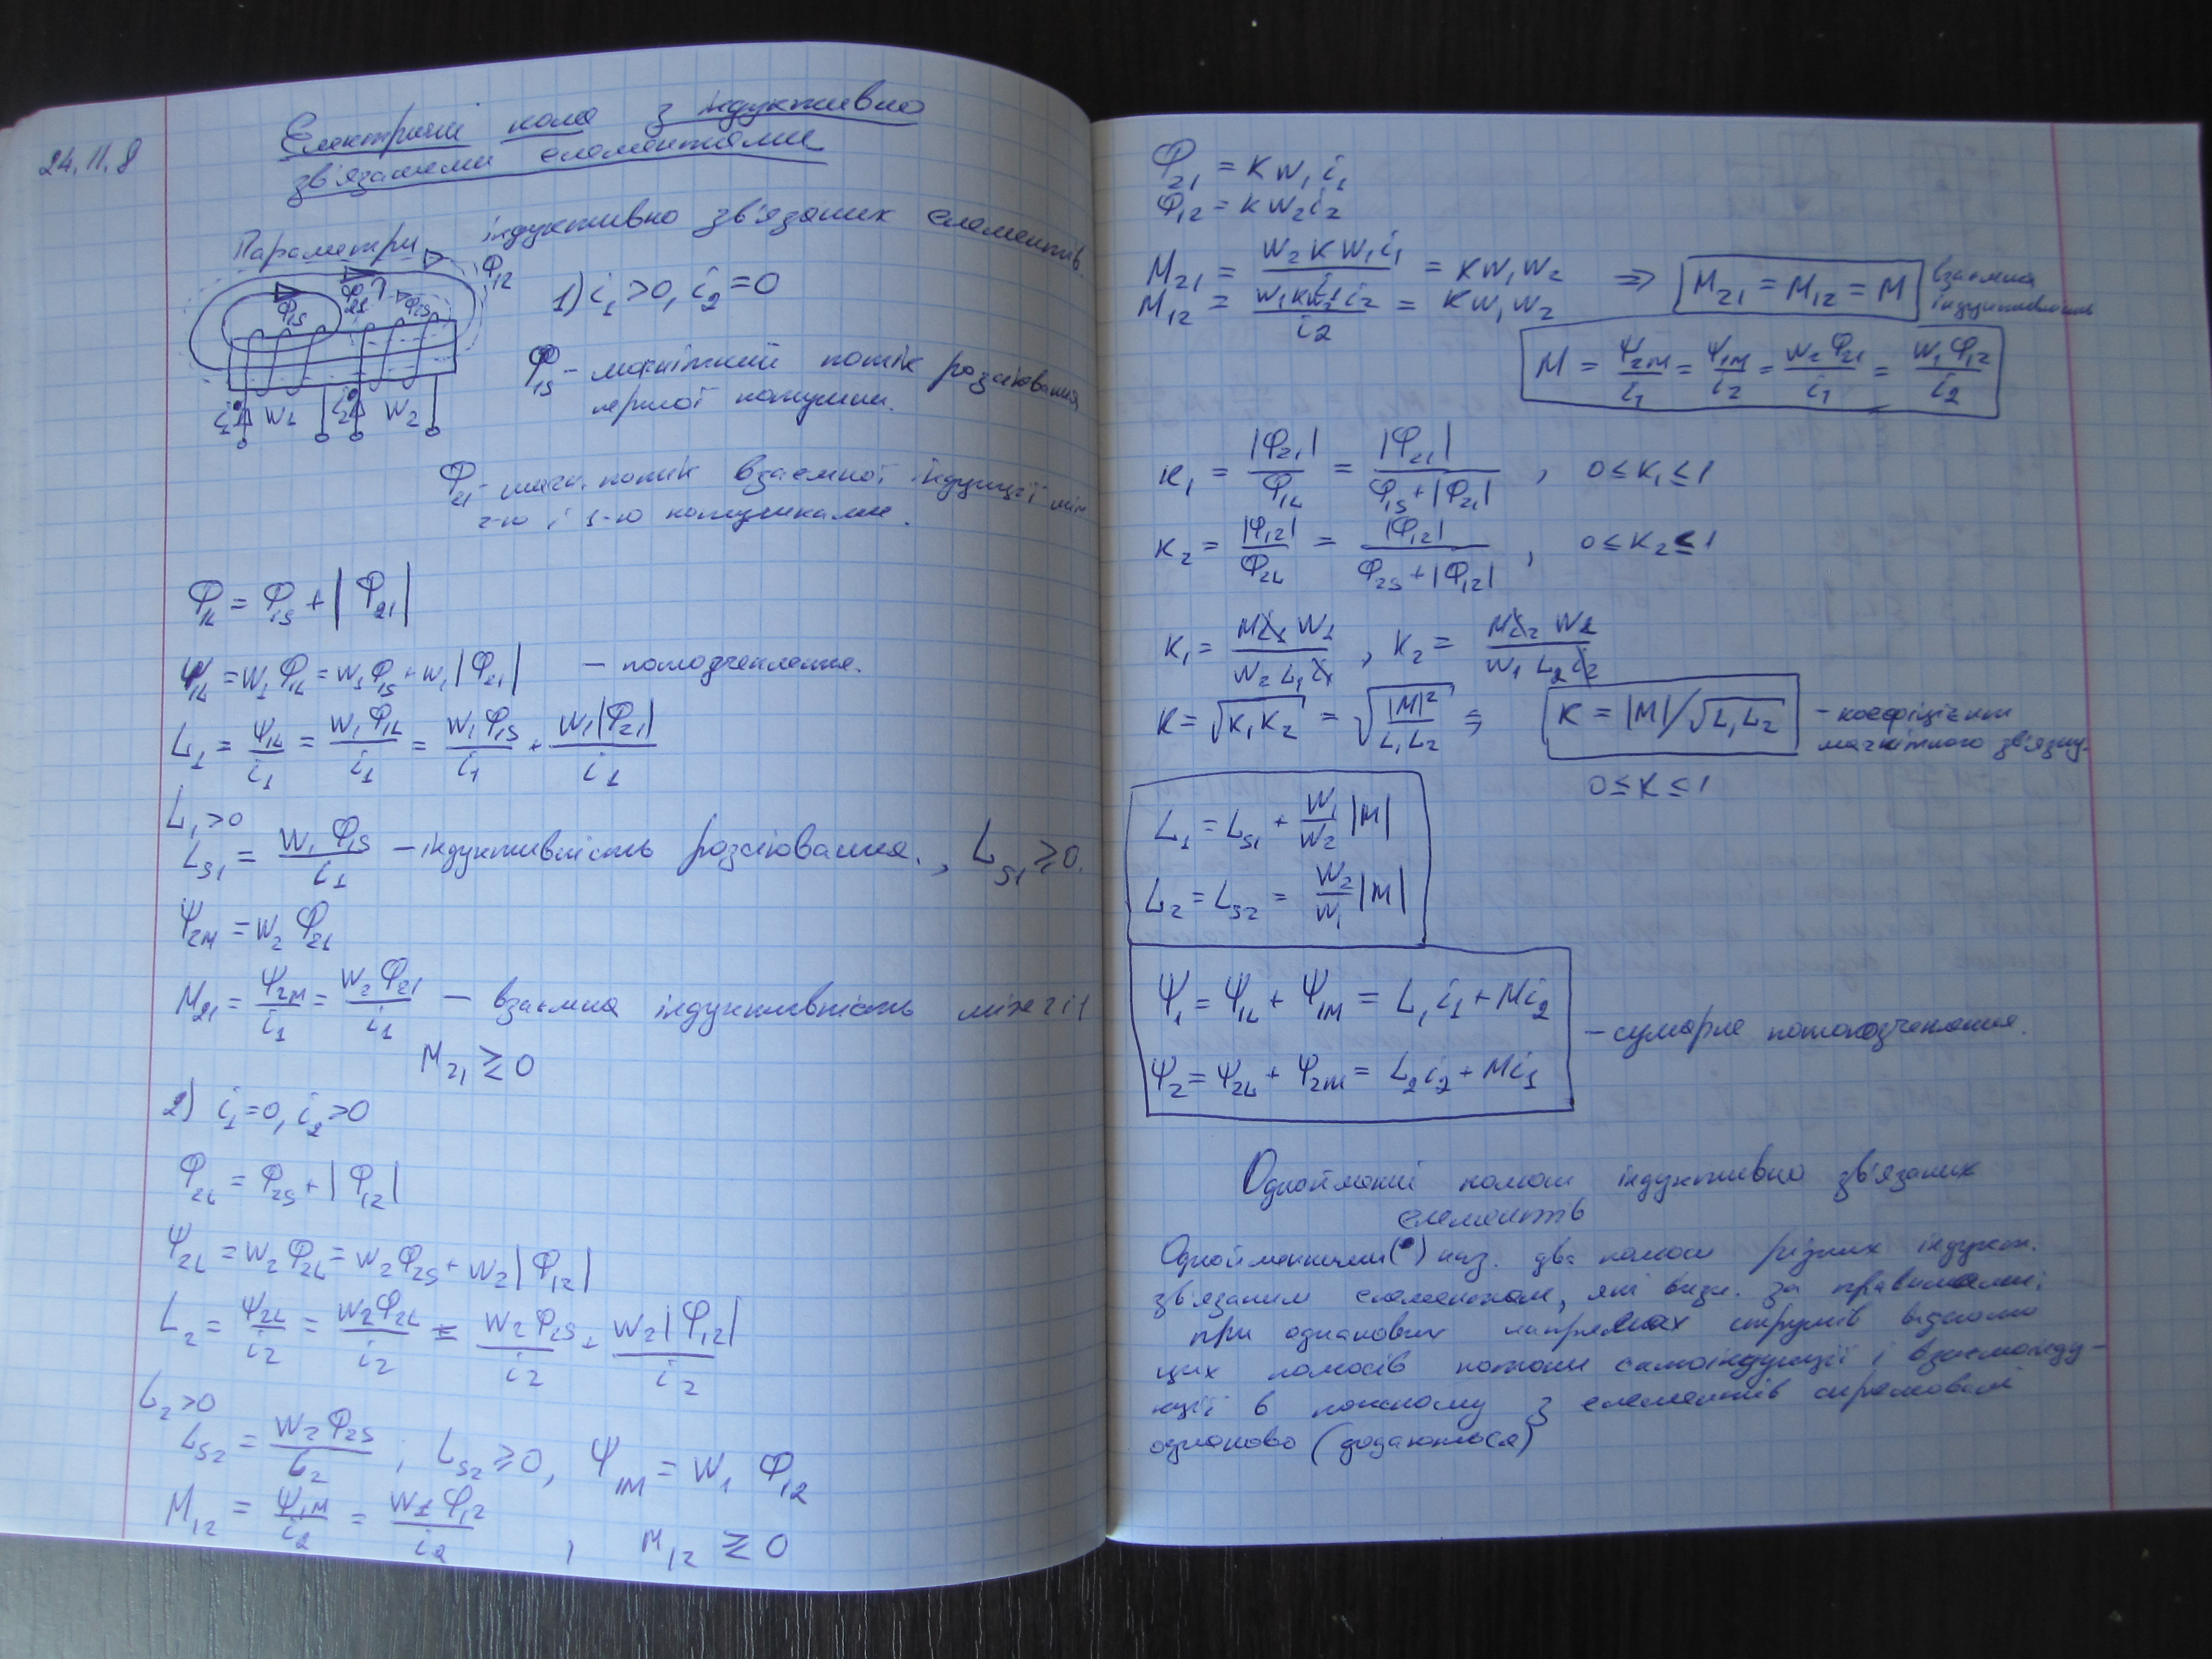 24.11.8
Електричні кола з індуктивно
зв'язаними елементами
Параметри індуктивно зв'язаних елементів.
Φ12
Φ1S Φ21 Φ2S
i1 W1 i2 W2
1) i1 > 0, i2 = 0
Φ1S – магнітний потік розсіювання
першої котушки.
Φ21 – магн. потік взаємної індукції між
2-ю і 1-ю котушками.
Φ1L = Φ1S + |Φ21|
Ψ1L = W1Φ1L = W1Φ1S + W1|Φ21| – потокозчеплення.
L1 = Ψ1L/i1 = W1Φ1L/i1 = W1Φ1S/i1 + W1|Φ21|/i1
L1 > 0
LS1 = W1Φ1S/i1 – індуктивність розсіювання., LS1 ≥ 0.
Ψ2M = W2 Φ21
M21 = Ψ2M/i1 = W2Φ21/i1 – взаємна індуктивність між 2 і 1
M21 ≷ 0
2) i1 = 0, i2 > 0
Φ2L = Φ2S + |Φ12|
Ψ2L = W2Φ2L = W2Φ2S + W2|Φ12|
L2 = Ψ2L/i2 = W2Φ2L/i2 = W2Φ2S/i2 + W2|Φ12|/i2
L2 > 0
LS2 = W2Φ2S/i2 ; LS2 ≥ 0, Ψ1M = W1 Φ12
M12 = Ψ1M/i2 = W1Φ12/i2 , M12 ≷ 0
Φ21 = K W1 i1
Φ12 = K W2 i2
M21 = W2 K W1 i1/i1 = K W1 W2
M12 = W1 K W2 i2/i2 = K W1 W2 ⇒ M21 = M12 = M взаємна
індуктивність
M = Ψ2M/i1 = Ψ1M/i2 = W2Φ21/i1 = W1Φ12/i2
K1 = |Φ21|/Φ1L = |Φ21|/(Φ1S + |Φ21|) , 0 ≤ K1 ≤ 1
K2 = |Φ12|/Φ2L = |Φ12|/(Φ2S + |Φ12|) , 0 ≤ K2 ≤ 1
K1 = M i1 W1/(W2 L1 i1) , K2 = M i2 W2/(W1 L2 i2)
K = √(K1K2) = √(|M|²/(L1L2)) ⇒ K = |M|/√(L1L2) – коефіцієнт
магнітного зв'язку.
0 ≤ K ≤ 1
L1 = LS1 + W1/W2 |M|
L2 = LS2 = W2/W1 |M|
Ψ1 = Ψ1L + Ψ1M = L1 i1 + M i2
– сумарне потокозчеплення.
Ψ2 = Ψ2L + Ψ2M = L2 i2 + M i1
Однойменні полюси індуктивно зв'язаних
елементів
Однойменними(•) наз. два полюси різних індукт.
зв'язаним елементом, які визн. за правилами:
при однакових напрямках струмів відносно
цих полюсів потоки самоіндукції і взаємоінду-
кції в кожному з елементів спрямовані
однаково (додаються)